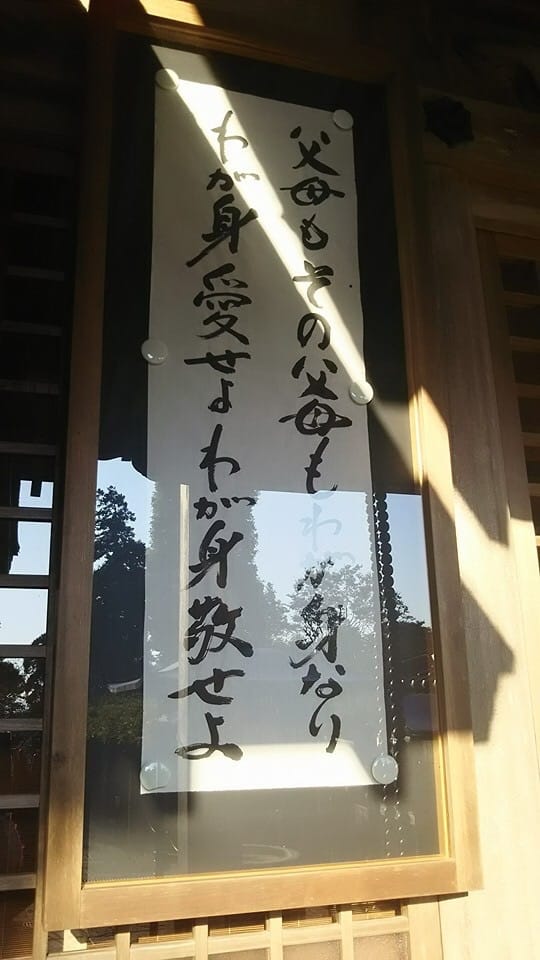 父母もその父母もわが身なり
わが身愛せよわが身敬せよ